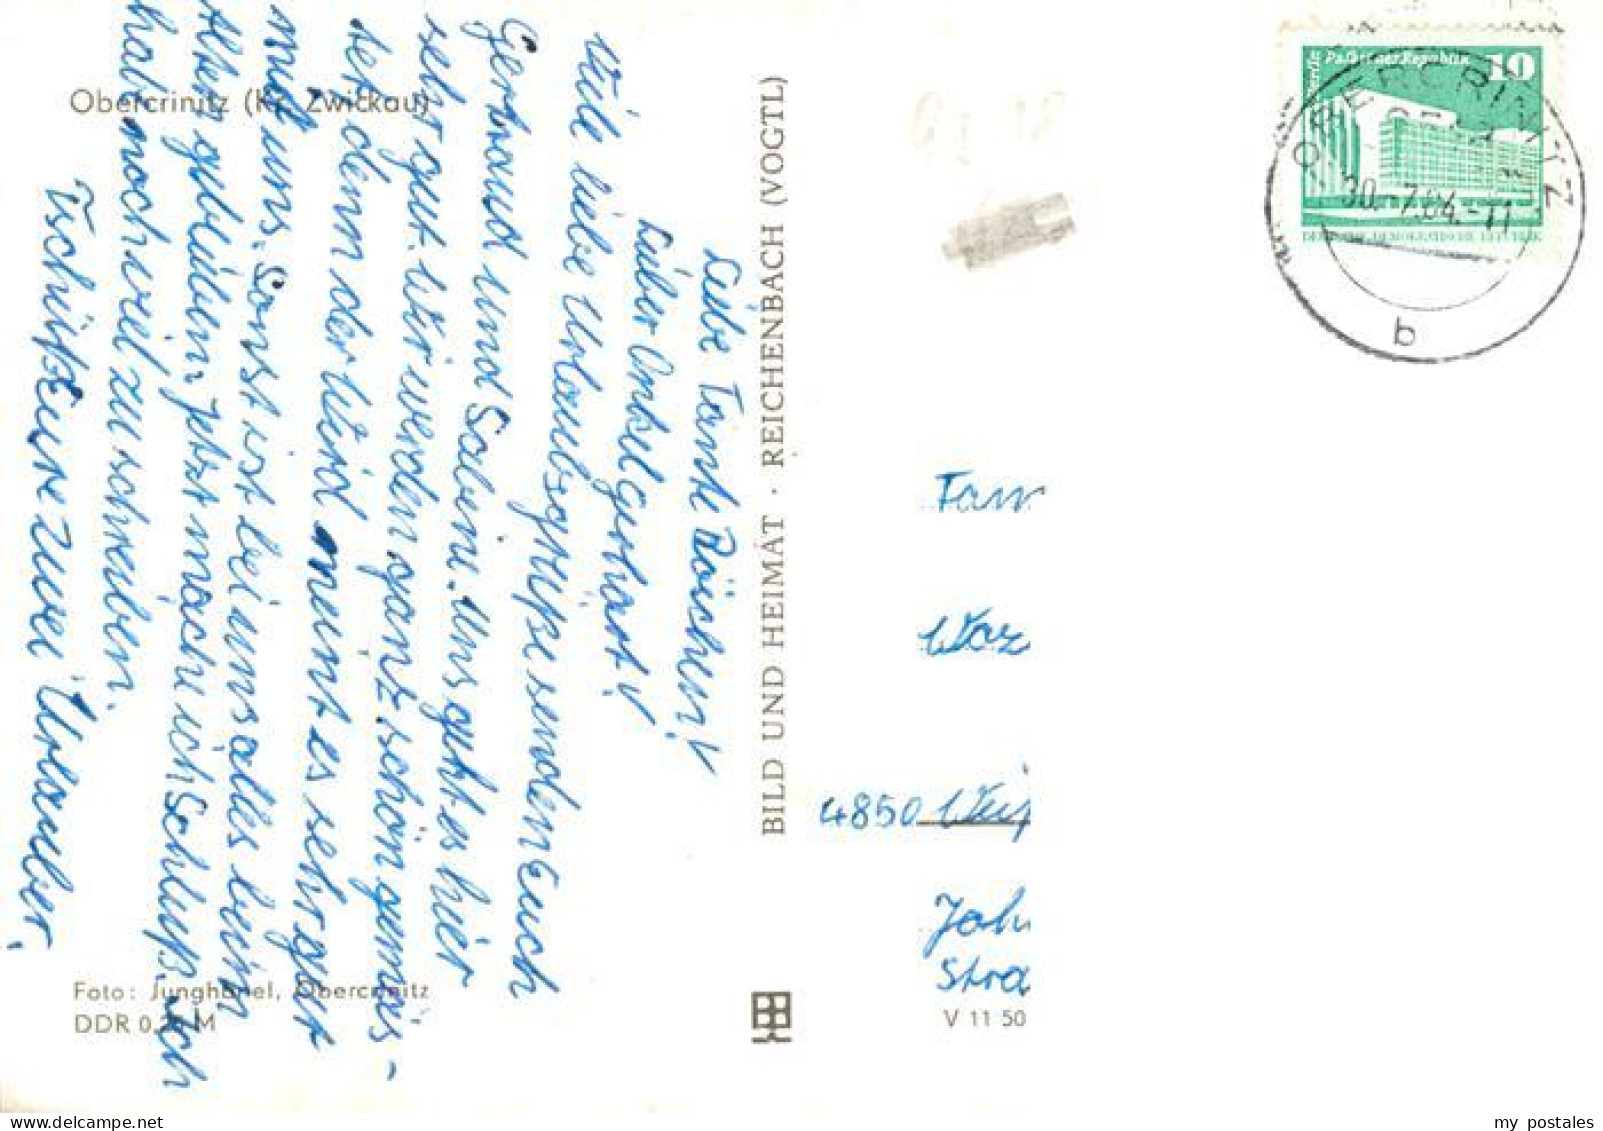 Obercrinitz (Kr. Zwickau)
Liebe Tante Röschen!
Lieber Onkel Gerhart!
Viele liebe Urlaubsgrüße senden Euch
Gertraud und Sabine. Uns geht es hier
sehr gut. Wir werden ganz schön gemäs-
tet, denn der Wird meint es sehr gut
mit uns. Sonst ist bei uns alles beim
Alten geblieben. Jetzt mache ich Schluß. Ich
hab noch viel zu schreiben.
Tschüß Eure zwei Urlauber.
Foto: Junghänel, Obercrinitz
DDR 0,20 M
BILD UND HEIMAT · REICHENBACH (VOGTL)
V 11 50
Palast der Republik 10
DEUTSCHE DEMOKRATISCHE REPUBLIK
OBERCRINITZ
30.-7.84.-11
b
Fam
War
4850 Wei
Joh
Stra
my postales